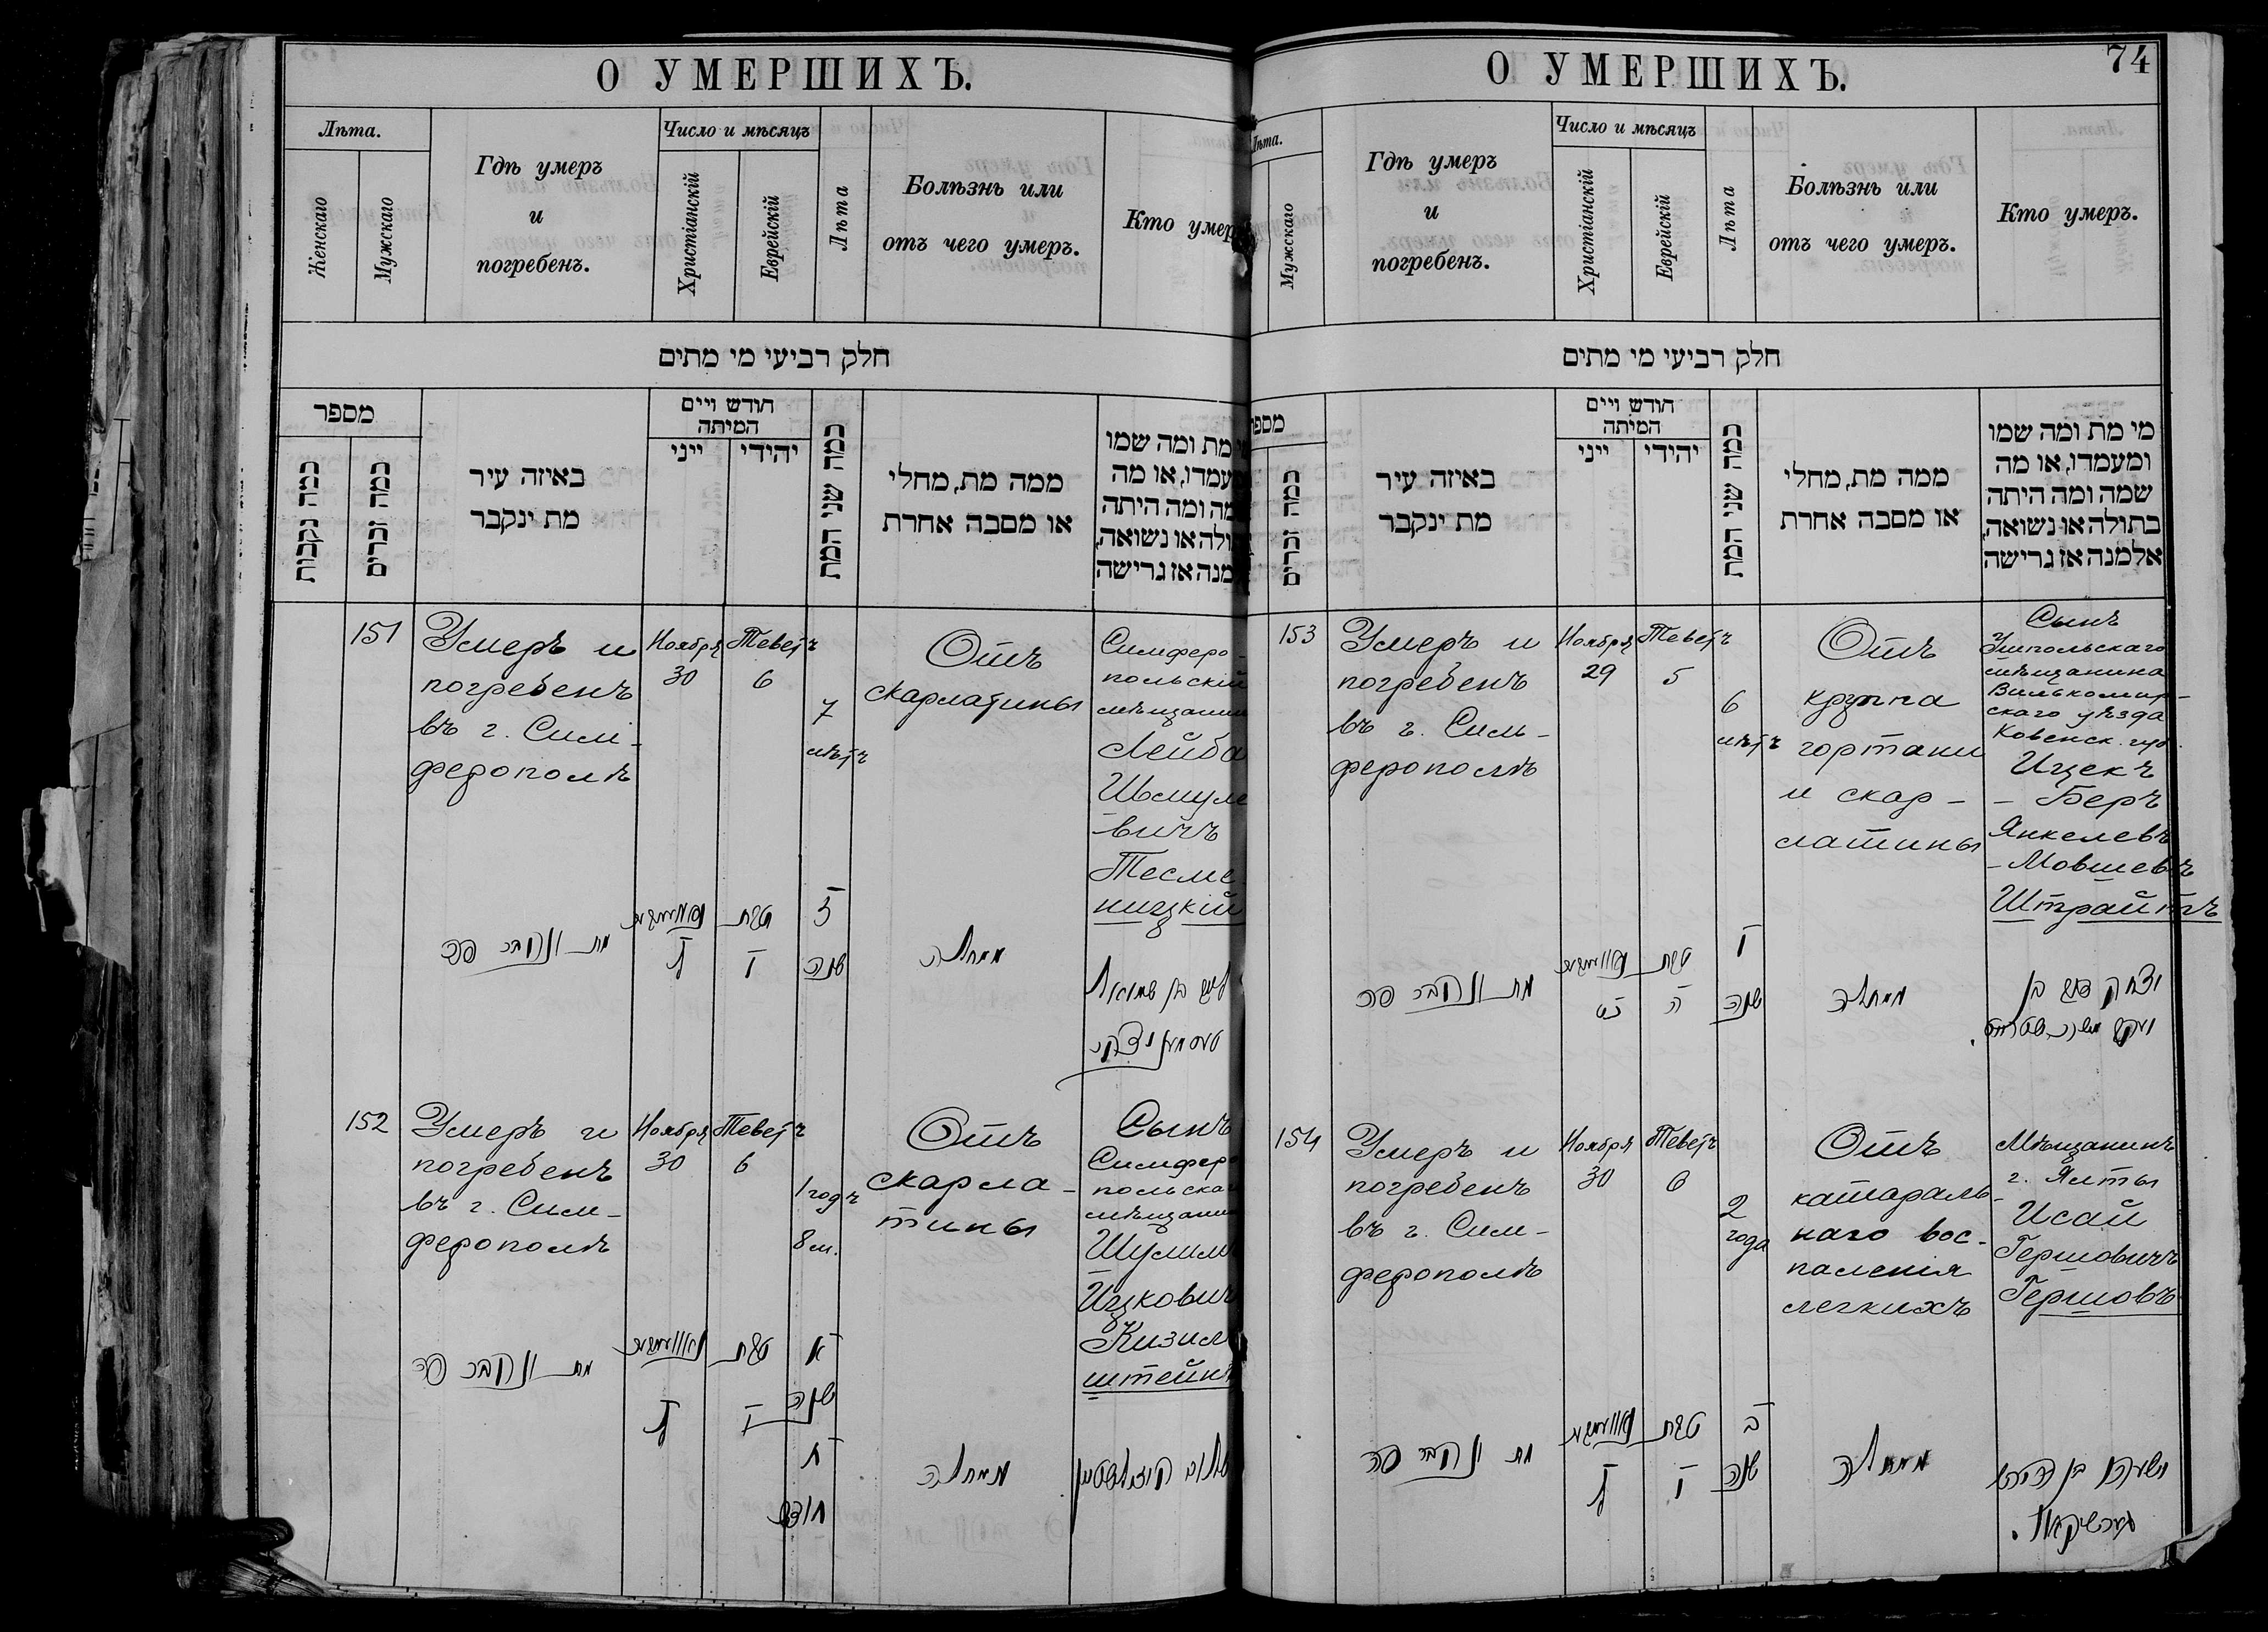 О УМЕРШИХЪ.
Лѣта.
Женскаго
Мужскаго
Гдѣ умеръ
и
погребенъ.
Число и мѣсяцъ
Христіанскій
Еврейскій
Лѣта
Болѣзнь или
отъ чего умеръ.
Кто умер
חלק רביעי מי מתים
מספר
כמה נקבות
כמה זכרים
באיזה עיר
מת ינקבר
חודש ויים
המיתה
ייני
יהודי
כמה שני המת
ממה מת, מחלי
או מסבה אחרת
מת ומה שמו
עמדו, או מה
מה ומה היתה
ולה או נשואה,
מנה אז גרישה
151
Умеръ и
погребенъ
въ г. Сим-
ферополѣ
Ноября
30
Теветъ
6
7
лѣтъ
Отъ
скарлатины
Симферо-
польскій
мѣщанин
Лейба
Шмуле
-вичъ
Тесме
ницкій
מת ונקבר פה
נאוועמבער
ל
טבת
ו
ז
שנה
ממחלה
לייב בן שמואל
152
Умеръ и
погребенъ
въ г. Сим-
ферополѣ
Ноября
30
Теветъ
6
1 годъ
8 м.
Отъ
скарла-
тины
Сынъ
Симфер
польска
мѣщани
Шулим
Ицкович
Кизил
штейн
מת ונקבר פה
נאוועמבער
ל
טבת
ו
א
שנה
ח
חודש
ממחלה
О УМЕРШИХЪ.
74
ѣта.
Мужскаго
Гдѣ умеръ
и
погребенъ.
Число и мѣсяцъ
Христіанскій
Еврейскій
Лѣта
Болѣзнь или
отъ чего умеръ.
Кто умеръ.
חלק רביעי מי מתים
מספר
כמה זכרים
באיזה עיר
מת ינקבר
חודש ויים
המיתה
ייני
יהודי
כמה שני המת
ממה מת, מחלי
או מסבה אחרת
מי מת ומה שמו
ומעמדו, או מה
שמה ומה היתה
בתולה או נשואה,
אלמנה אז גרישה
153
Умеръ и
погребенъ
въ г. Сим-
ферополѣ
Ноября
29
Теветъ
5
6
лѣтъ
Отъ
крупа
гортани
и скар-
латины
Сынъ
Ушпольскаго
мѣщанина
Вилькомир-
скаго уѣзда
Ковенск. губ.
Ицекъ
- Беръ
Янкелевъ
- Мовшевъ
Штрайтъ
מת ונקבר פה
נאוועמבער
כט
טבת
ה
ו
שנה
ממחלה
יצחק בער בן
154
Умеръ и
погребенъ
въ г. Сим-
ферополѣ
Ноября
30
Теветъ
6
2
года
Отъ
катараль-
наго вос-
паленія
легкихъ
Мѣщанинъ
г. Ялты
Исай
Гершовичъ
Гершовъ
מת ונקבר פה
נאוועמבער
ל
טבת
ו
ב
שנה
ממחלה